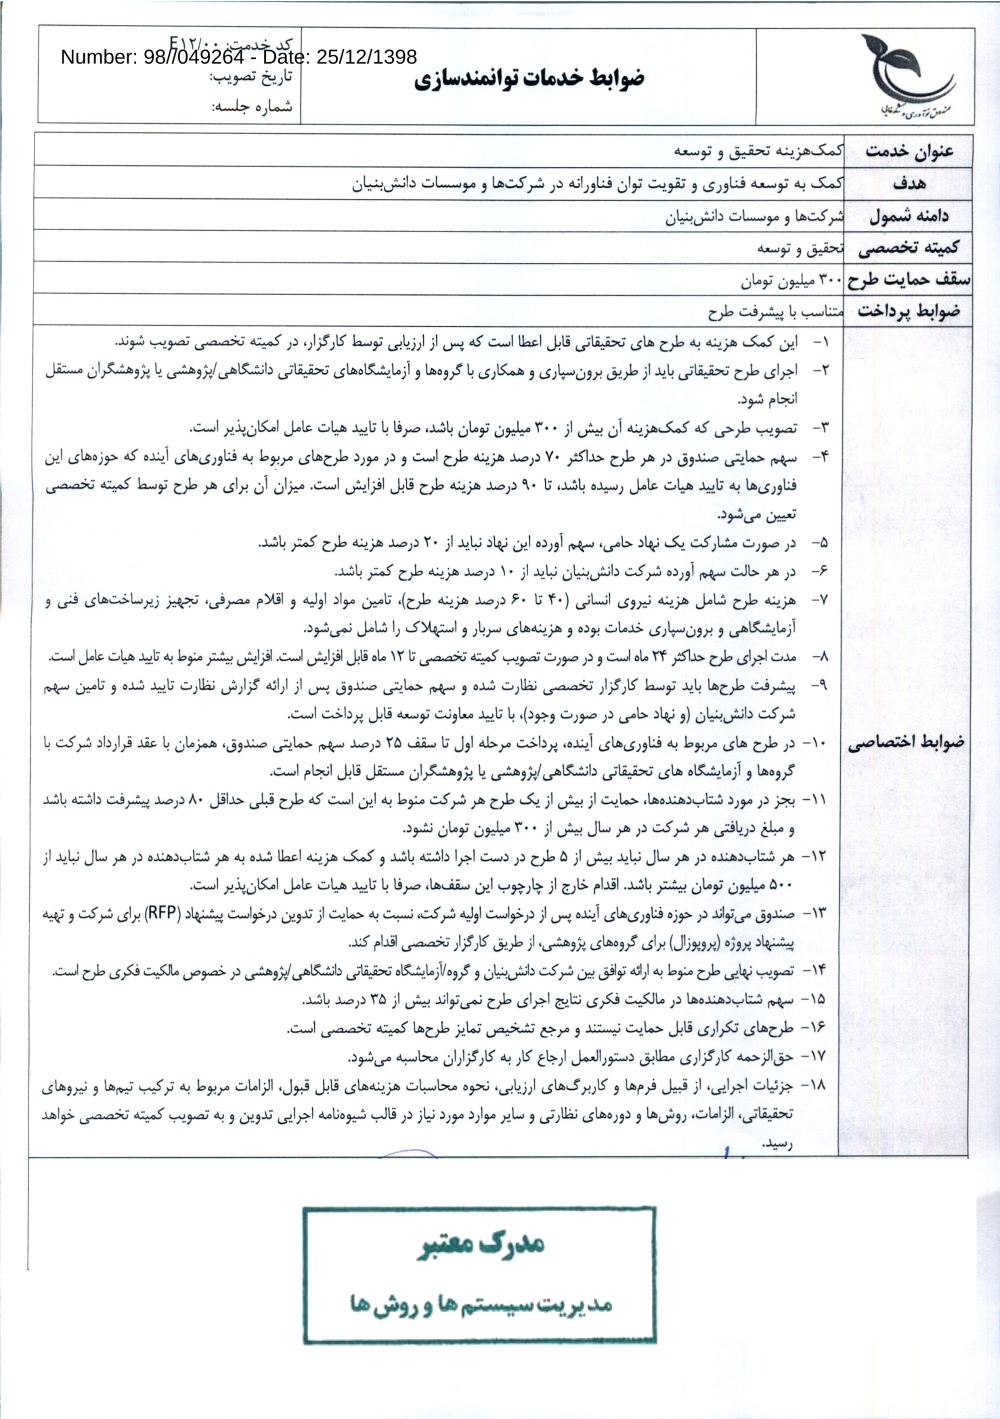 کد خدمت: E۱۲/۰۰
Number: 98//049264 - Date: 25/12/1398
تاریخ تصویب:
شماره جلسه:
ضوابط خدمات توانمندسازی
صندوق نوآوری و شکوفایی
عنوان خدمت کمک‌هزینه تحقیق و توسعه
هدف کمک به توسعه فناوری و تقویت توان فناورانه در شرکت‌ها و موسسات دانش‌بنیان
دامنه شمول شرکت‌ها و موسسات دانش‌بنیان
کمیته تخصصی تحقیق و توسعه
سقف حمایت طرح ۳۰۰ میلیون تومان
ضوابط پرداخت متناسب با پیشرفت طرح
ضوابط اختصاصی
۱- این کمک هزینه به طرح های تحقیقاتی قابل اعطا است که پس از ارزیابی توسط کارگزار، در کمیته تخصصی تصویب شوند.
۲- اجرای طرح تحقیقاتی باید از طریق برون‌سپاری و همکاری با گروه‌ها و آزمایشگاه‌های تحقیقاتی دانشگاهی/پژوهشی یا پژوهشگران مستقل
انجام شود.
۳- تصویب طرحی که کمک‌هزینه آن بیش از ۳۰۰ میلیون تومان باشد، صرفا با تایید هیات عامل امکان‌پذیر است.
۴- سهم حمایتی صندوق در هر طرح حداکثر ۷۰ درصد هزینه طرح است و در مورد طرح‌های مربوط به فناوری‌های آینده که حوزه‌های این
فناوری‌ها به تایید هیات عامل رسیده باشد، تا ۹۰ درصد هزینه طرح قابل افزایش است. میزان آن برای هر طرح توسط کمیته تخصصی
تعیین می‌شود.
۵- در صورت مشارکت یک نهاد حامی، سهم آورده این نهاد نباید از ۲۰ درصد هزینه طرح کمتر باشد.
۶- در هر حالت سهم آورده شرکت دانش‌بنیان نباید از ۱۰ درصد هزینه طرح کمتر باشد.
۷- هزینه طرح شامل هزینه نیروی انسانی (۴۰ تا ۶۰ درصد هزینه طرح)، تامین مواد اولیه و اقلام مصرفی، تجهیز زیرساخت‌های فنی و
آزمایشگاهی و برون‌سپاری خدمات بوده و هزینه‌های سربار و استهلاک را شامل نمی‌شود.
۸- مدت اجرای طرح حداکثر ۲۴ ماه است و در صورت تصویب کمیته تخصصی تا ۱۲ ماه قابل افزایش است. افزایش بیشتر منوط به تایید هیات عامل است.
۹- پیشرفت طرح‌ها باید توسط کارگزار تخصصی نظارت شده و سهم حمایتی صندوق پس از ارائه گزارش نظارت تایید شده و تامین سهم
شرکت دانش‌بنیان (و نهاد حامی در صورت وجود)، با تایید معاونت توسعه قابل پرداخت است.
۱۰- در طرح های مربوط به فناوری‌های آینده، پرداخت مرحله اول تا سقف ۲۵ درصد سهم حمایتی صندوق، همزمان با عقد قرارداد شرکت با
گروه‌ها و آزمایشگاه های تحقیقاتی دانشگاهی/پژوهشی یا پژوهشگران مستقل قابل انجام است.
۱۱- بجز در مورد شتاب‌دهنده‌ها، حمایت از بیش از یک طرح هر شرکت منوط به این است که طرح قبلی حداقل ۸۰ درصد پیشرفت داشته باشد
و مبلغ دریافتی هر شرکت در هر سال بیش از ۳۰۰ میلیون تومان نشود.
۱۲- هر شتاب‌دهنده در هر سال نباید بیش از ۵ طرح در دست اجرا داشته باشد و کمک هزینه اعطا شده به هر شتاب‌دهنده در هر سال نباید از
۵۰۰ میلیون تومان بیشتر باشد. اقدام خارج از چارچوب این سقف‌ها، صرفا با تایید هیات عامل امکان‌پذیر است.
۱۳- صندوق می‌تواند در حوزه فناوری‌های آینده پس از درخواست اولیه شرکت، نسبت به حمایت از تدوین درخواست پیشنهاد (RFP) برای شرکت و تهیه
پیشنهاد پروژه (پروپوزال) برای گروه‌های پژوهشی، از طریق کارگزار تخصصی اقدام کند.
۱۴- تصویب نهایی طرح منوط به ارائه توافق بین شرکت دانش‌بنیان و گروه/آزمایشگاه تحقیقاتی دانشگاهی/پژوهشی در خصوص مالکیت فکری طرح است.
۱۵- سهم شتاب‌دهنده‌ها در مالکیت فکری نتایج اجرای طرح نمی‌تواند بیش از ۳۵ درصد باشد.
۱۶- طرح‌های تکراری قابل حمایت نیستند و مرجع تشخیص تمایز طرح‌ها کمیته تخصصی است.
۱۷- حق‌الزحمه کارگزاری مطابق دستورالعمل ارجاع کار به کارگزاران محاسبه می‌شود.
۱۸- جزئیات اجرایی، از قبیل فرم‌ها و کاربرگ‌های ارزیابی، نحوه محاسبات هزینه‌های قابل قبول، الزامات مربوط به ترکیب تیم‌ها و نیروهای
تحقیقاتی، الزامات، روش‌ها و دوره‌های نظارتی و سایر موارد مورد نیاز در قالب شیوه‌نامه اجرایی تدوین و به تصویب کمیته تخصصی خواهد
رسید.
مدرک معتبر
مدیریت سیستم ها و روش ها